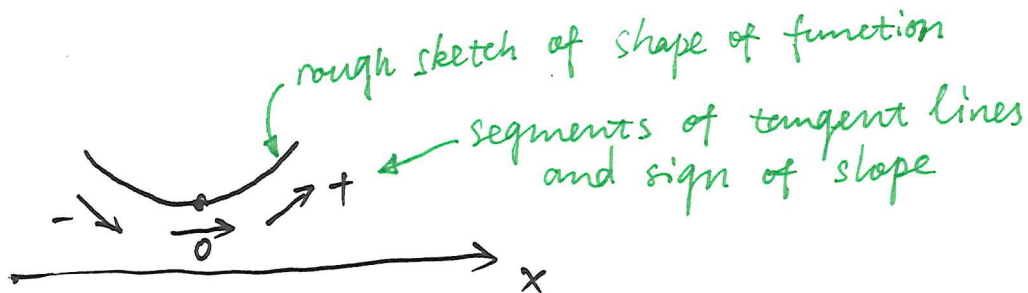 rough sketch of shape of function
segments of tangent lines
and sign of slope
- 0 +
x